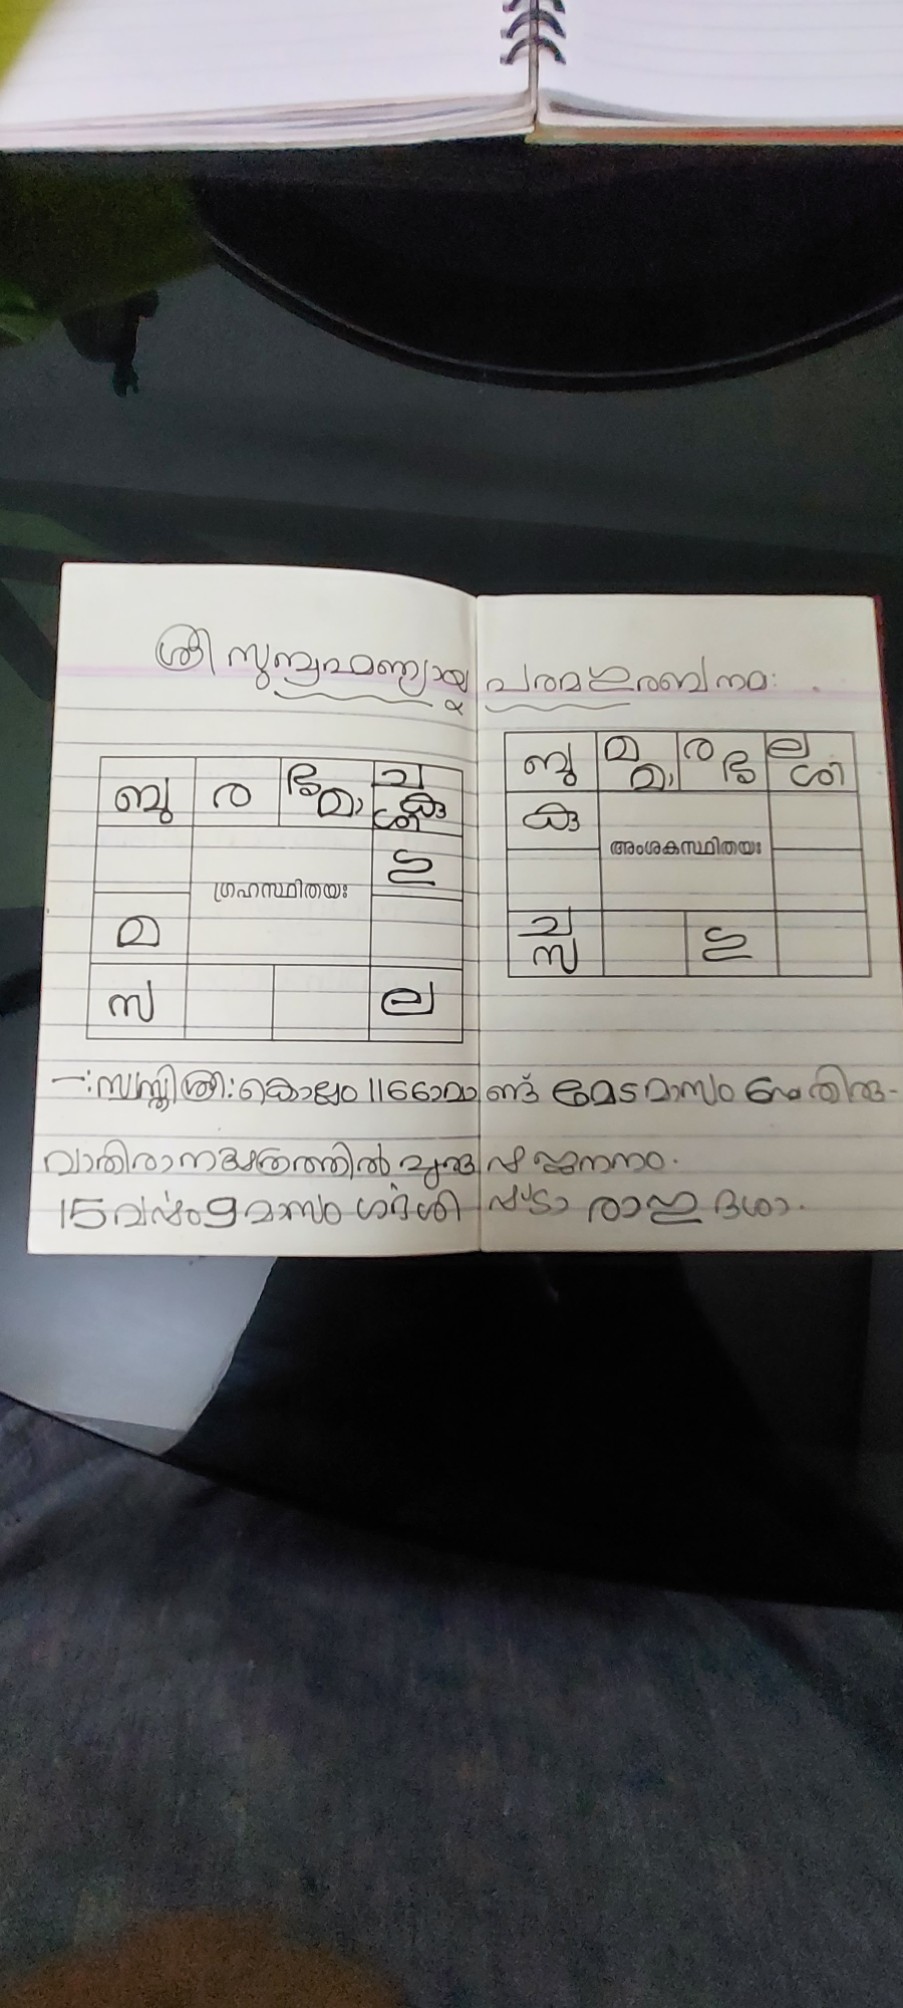 ശ്രീ സുബ്രഹ്മണ്യായ പരമഗുരവേ നമഃ
ബു ര മാ ച കു ശി
ഗു
ഗ്രഹസ്ഥിതയഃ
മ
സ ല
ബു മ മാ ര ല ശി
കു
അംശകസ്ഥിതയഃ
ച സ ഗു
സ്വസ്തിശ്രീ: കൊല്ലം 1166ാമാണ്ട് മേടമാസം തിരു-
വാതിരാനക്ഷത്രത്തിൽ ജനനം.
15 വർഷം 9 മാസം രാഹു ദശാ.